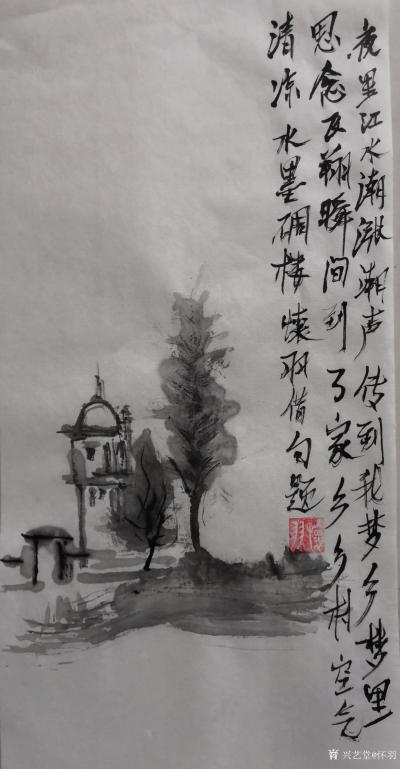 夜里江水潮涨潮声传到我梦乡梦里
思念飞翔瞬间到了家乡乡村空气
清凉水墨碉楼懷羽借句题
兴艺堂@怀羽